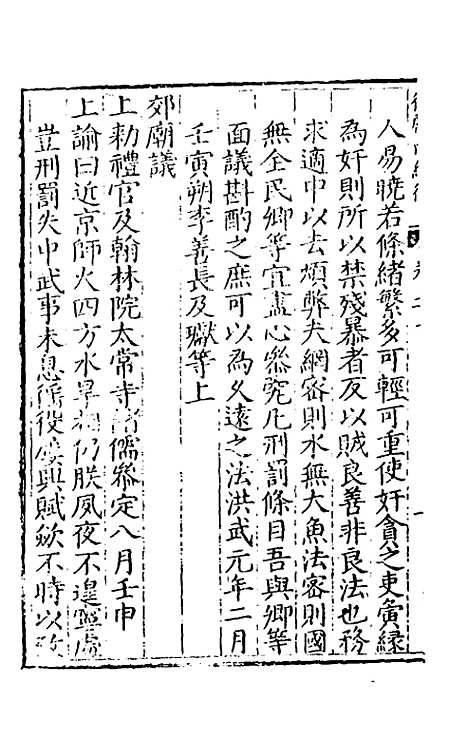 人易曉若條緒繁多可輕可重使奸貪之吏夤緣
為奸則所以禁殘暴者反以賊良善非良法也務
求適中以去煩弊夫網密則水無大魚法密則國
無全民卿等宜盡心參究凡刑罰條目吾與卿等
面議斟酌之庶可以為久遠之法洪武元年二月
壬寅朔李善長及瓛等上
郊廟議
上勅禮官及翰林院太常寺諸儒參定八月壬申
上諭曰近京師火四方水旱相仍朕夙夜不遑寧處
豈刑罰失中武事未息徭役屢興賦歛不時以致